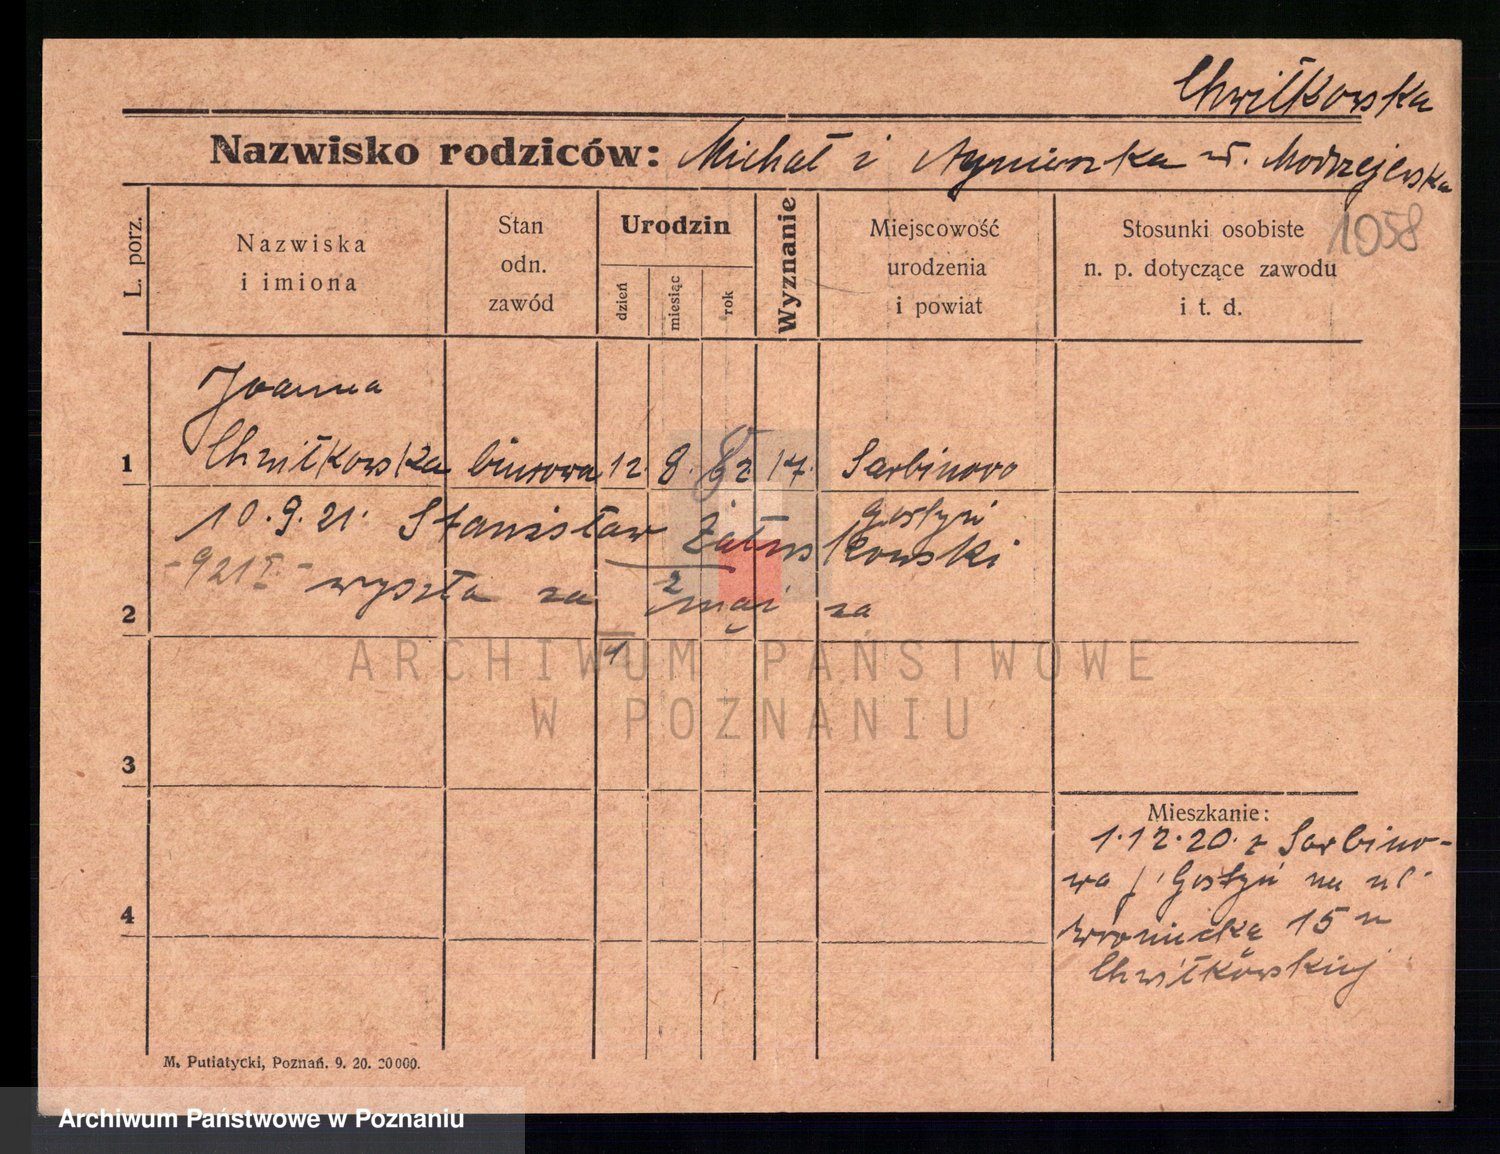 Chwiłkowska
Nazwisko rodziców: Michał i Agnieszka z d. Modrzejewska
1058
L. porz.
Nazwiska
i imiona
Stan
odn.
zawód
Urodzin
dzień
miesiąc
rok
Wyznanie
Miejscowość
urodzenia
i powiat
Stosunki osobiste
n. p. dotyczące zawodu
i t. d.
Joanna
1 Chwiłkowska biurowa 12. 8. Sarbinowo
Gostyń
10.9.21. Stanisław Żółtuszkowski
-921 I.-
2 wyszła za mąż za
3
Mieszkanie:
1.12.20. z Sarbino-
wa p. Gostyń na ul.
4
Wroniecką 15 u
Chwiłkowskiej
M. Putiatycki, Poznań. 9. 20. 20000.
ARCHIWUM PAŃSTWOWE
W POZNANIU
Archiwum Państwowe w Poznaniu